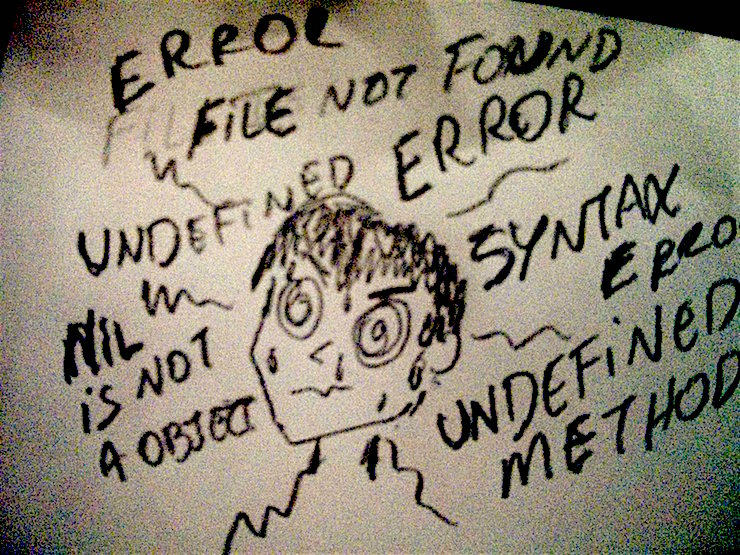 ERROR
FILE NOT FOUND
ERROR
UNDEFINED
SYNTAX
ERRO
NIL
IS NOT
A OBJECT
UNDEFINED
METHOD